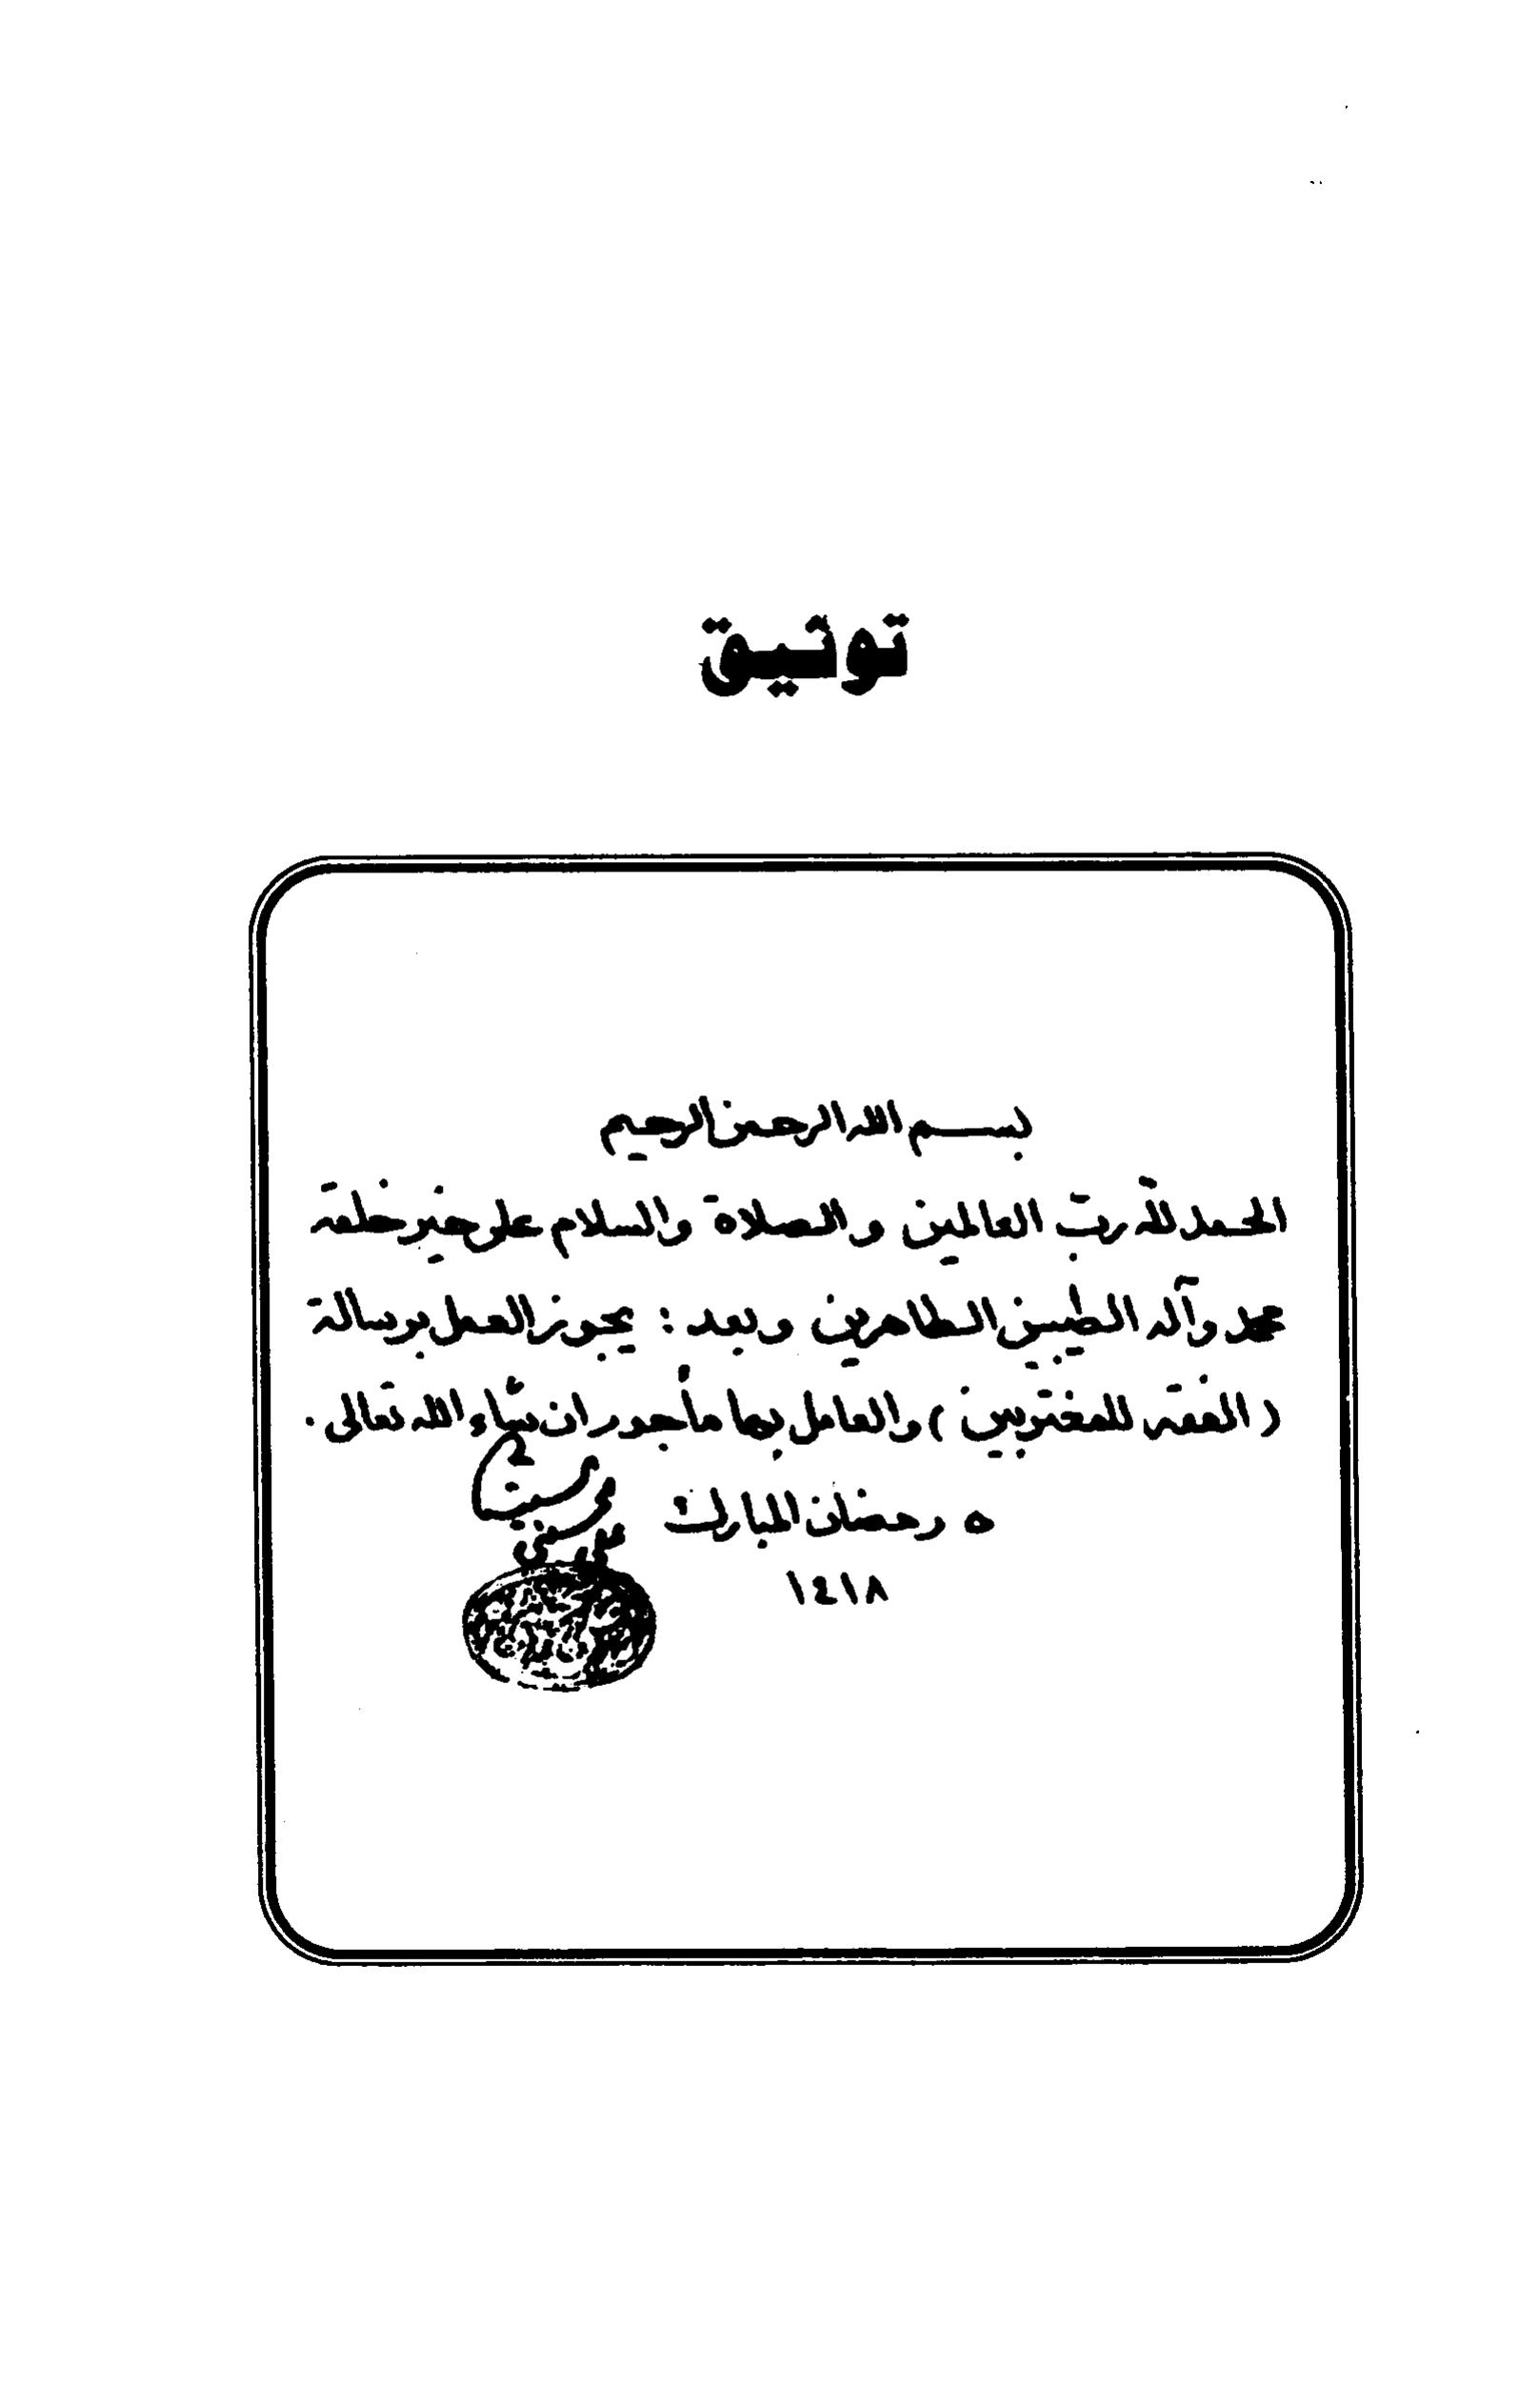 توثيق
بسم الله الرحمن الرحيم
الحمد لله ربّ العالمين والصلاة والسلام على خير خلقه
محمد وآله الطيبين الطاهرين وبعد : يجوز العمل برسالة
( الفقه للمغتربين ) والعامل بها مأجور ان شاء الله تعالى .
٥ رمضان المبارك
١٤١٨